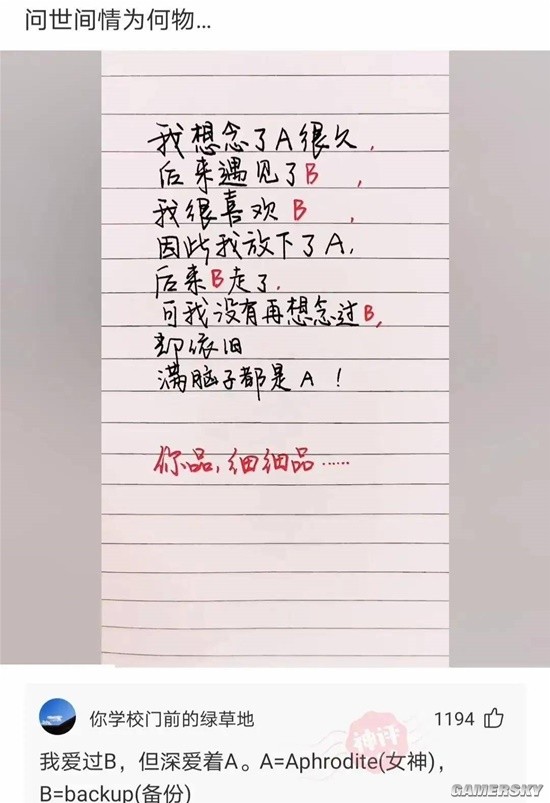 问世间情为何物...
我想念了A很久,
后来遇见了B ,
我很喜欢B ,
因此我放下了A,
后来B走了.
可我没有再想念过B,
却依旧
满脑子都是A！
你品,细细品……
你学校门前的绿草地
神评
1194
我爱过B，但深爱着A。A=Aphrodite(女神)，
B=backup(备份)
GAMERSKY